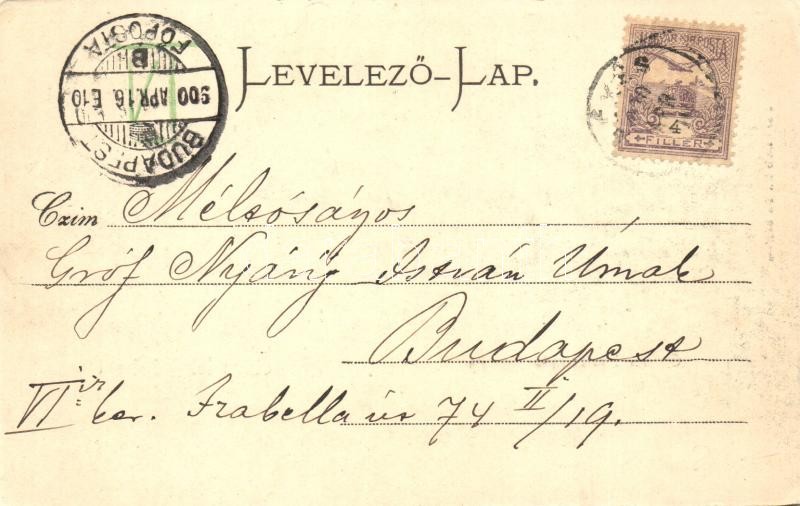 LEVELEZŐ-LAP.
BUDAPEST
900 APR. 16. E 10
B
FŐPOSTA
4
FILLÉR
Czim Méltóságos
Gróf Nyáry István Úrnak
Budapest
VI ik ker. Izabella út 74 II/19.